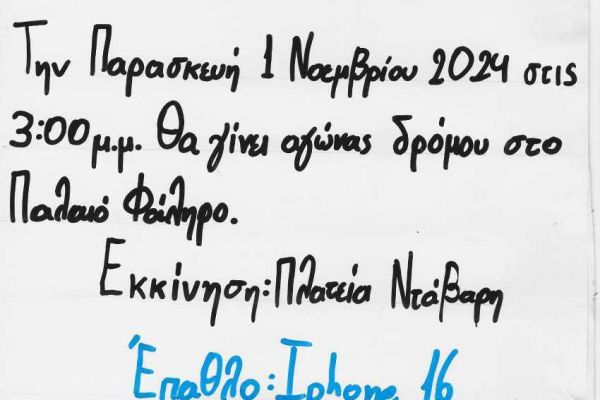 Την Παρασκευή 1 Νοεμβρίου 2024 στις
3:00μ.μ. Θα γίνει αγώνας δρόμου στο
Παλαιό Φάληρο.
Εκκίνηση: Πλατεία Ντάβαρη
Έπαθλο: Iphone 16